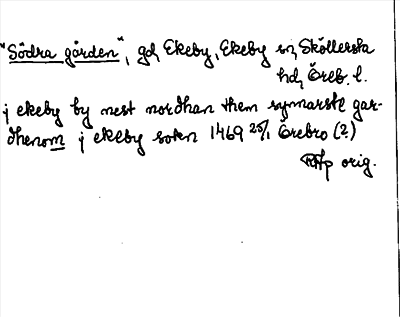 "Södra gården", gd, Ekeby, Ekeby sn, Sköllersta
hd, Öreb. l.
j ekeby by nest nordhan them synnarste gar-
dhenom j ekeby soken 1469 25/1 Örebro (?)
RAp orig.